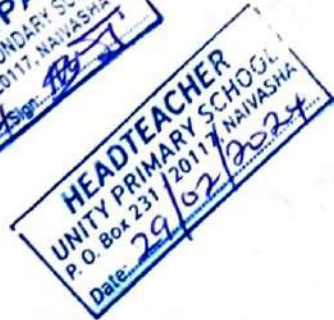 PA
NDARY SC
20117, NAIVASHA
Sign:
HEADTEACHER
UNITY PRIMARY SCHOOL
P. O. Box 231 / 20117 NAIVASHA
Date: 29/02/2024